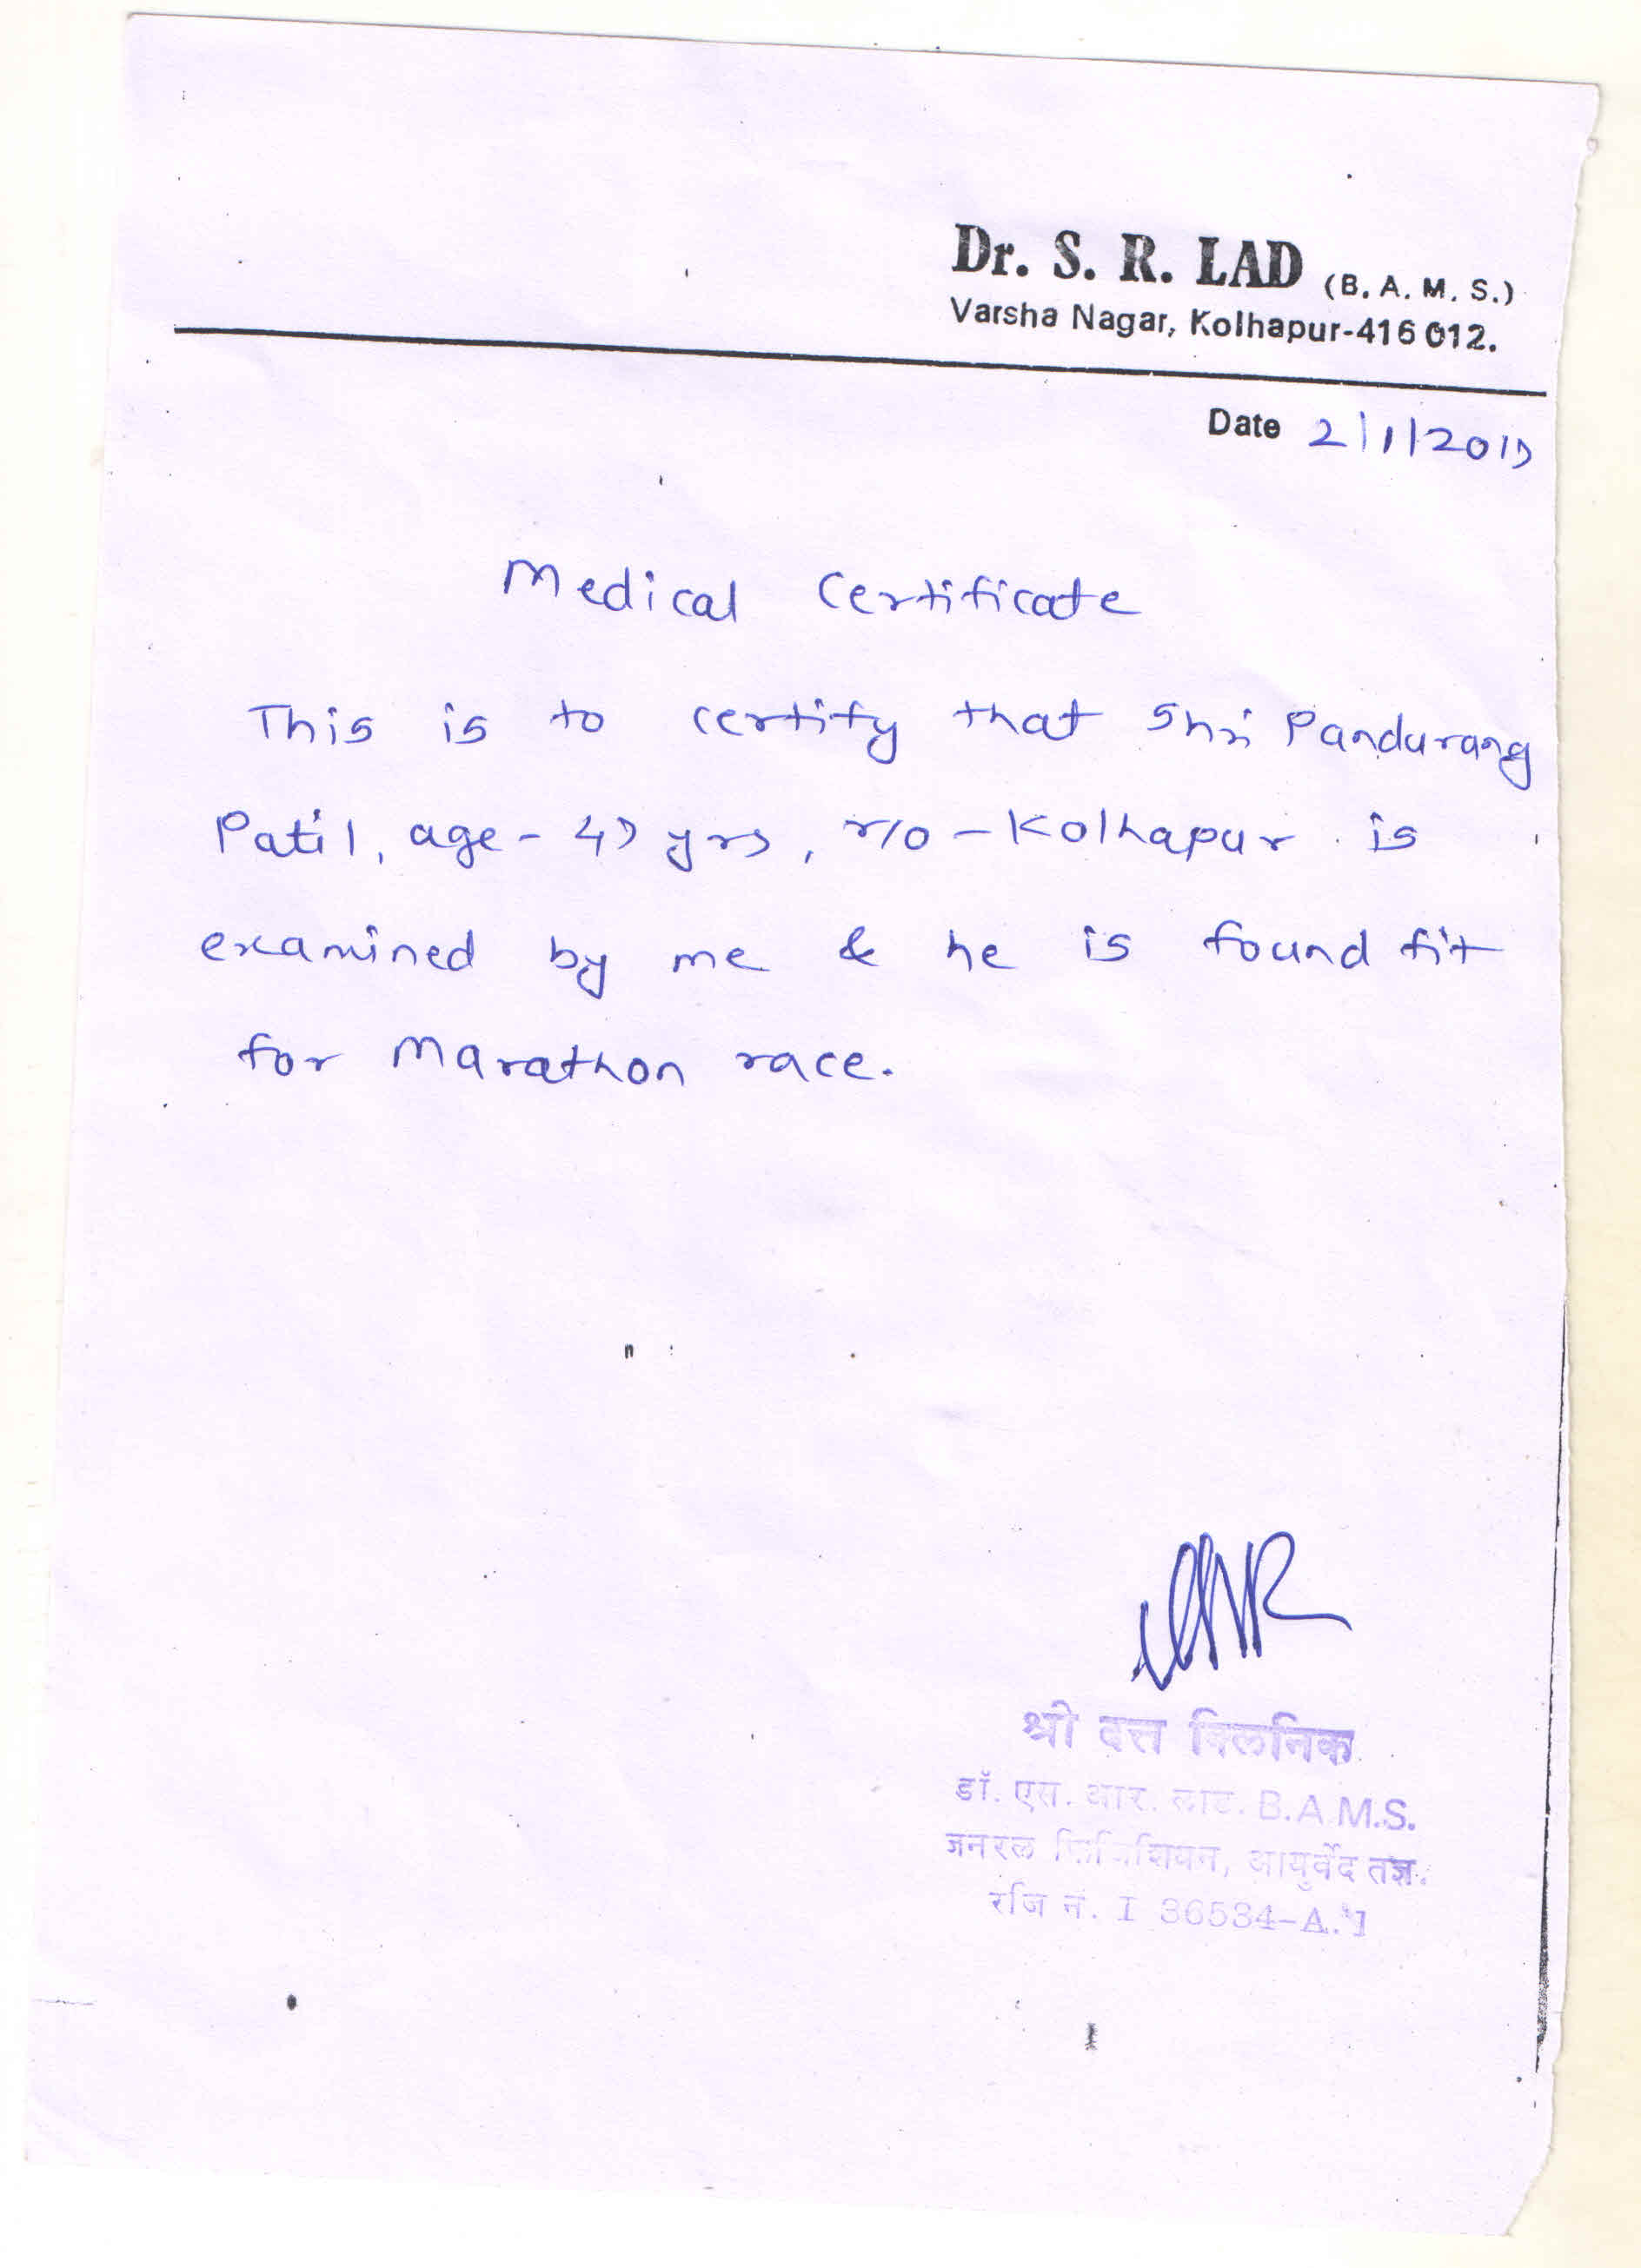 Dr. S. R. LAD (B. A. M. S.)
Varsha Nagar, Kolhapur-416 012.
Date 2/1/2017
Medical Certificate
This is to certify that Shri Pandurang
Patil, age - 47 yrs, r/o - Kolhapur is
examined by me & he is found fit
for Marathon race.
श्री दत्त क्लिनिक
डॉ. एस. आर. लाड. B.A.M.S.
जनरल फिजिशियन, आयुर्वेद तज्ञ.
रजि नं. I 36534-A.